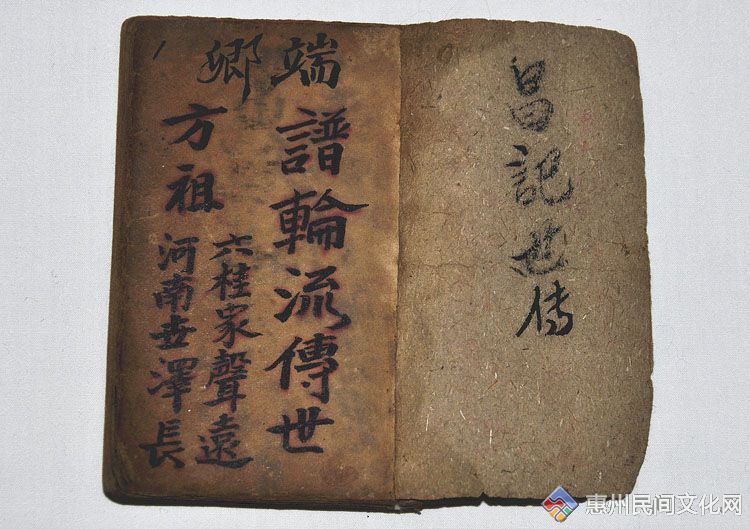 昌記世传
端譜輪流傳世
鄉
方祖
六桂家聲遠
河南世澤長
惠州民间文化网